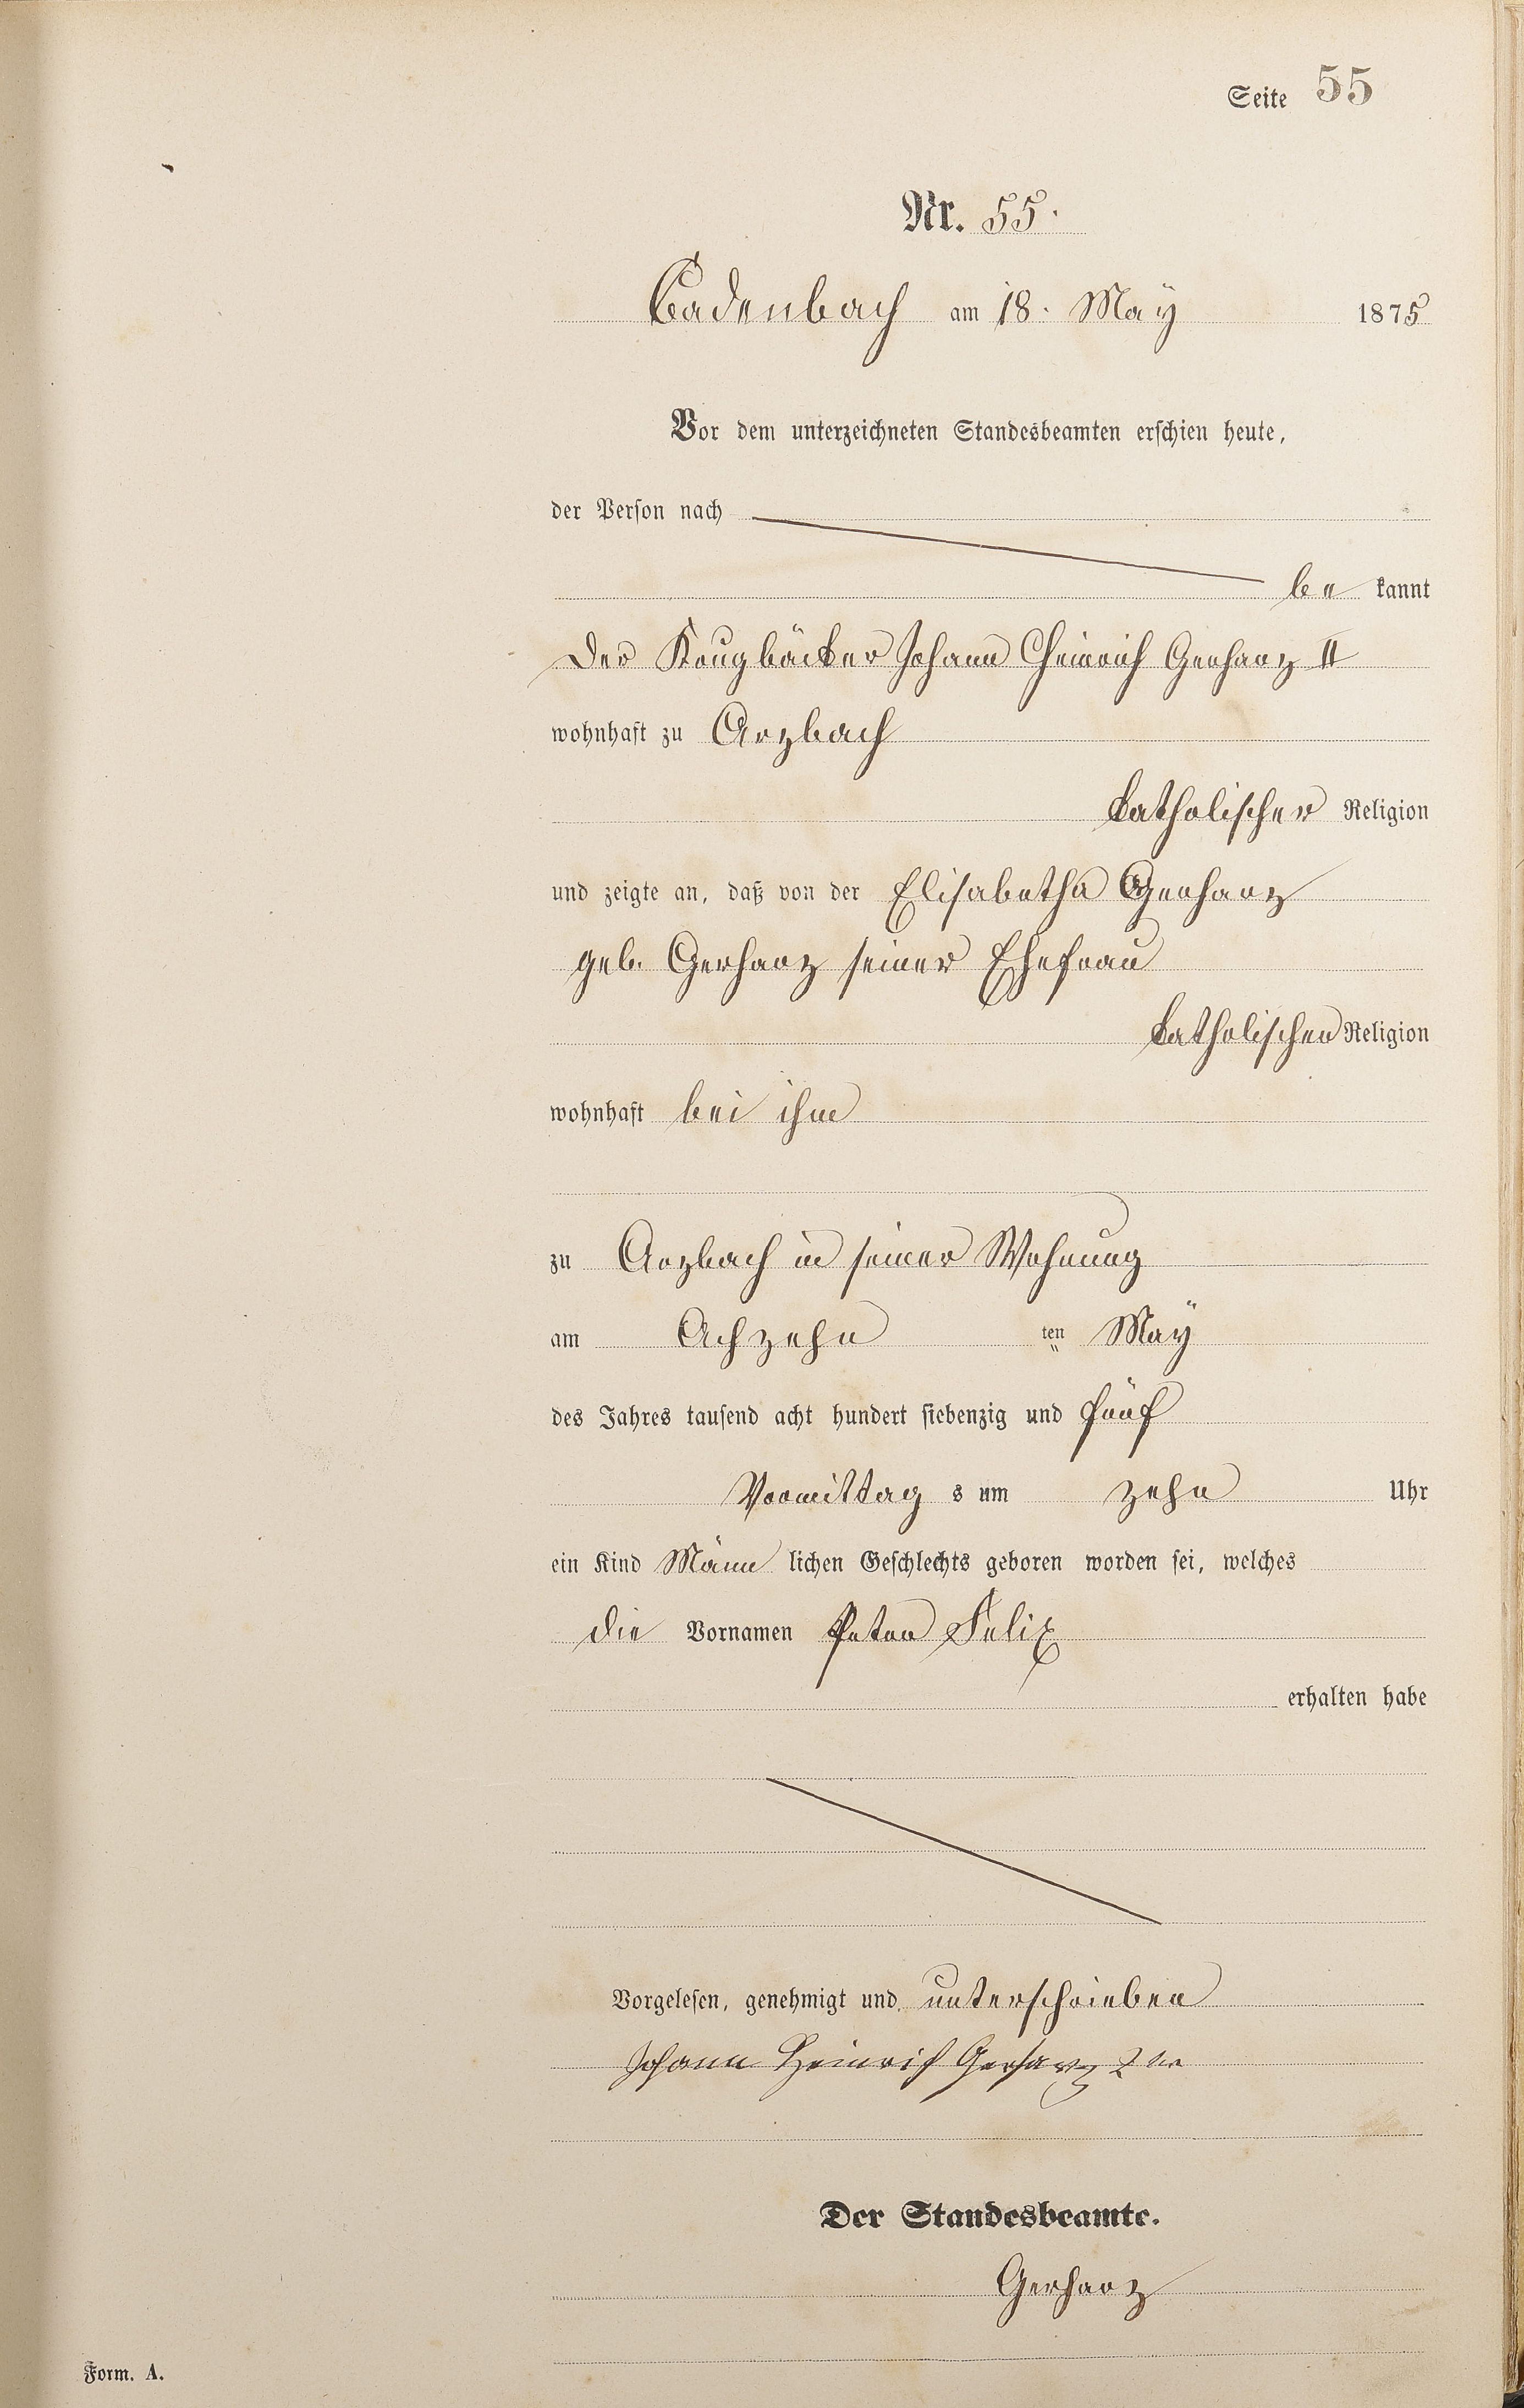 Seite 55
Nr. 55.
Cadenbach am 18. May 1875
Vor dem unterzeichneten Standesbeamten erschien heute,
der Person nach
be kannt
Der Krugbäcker Johann Heinrich Gerharz II
wohnhaft zu Arzbach
katholischer Religion
und zeigte an, daß von der Elisabetha Gerharz
geb. Gerharz seiner Ehefrau
katholischer Religion
wohnhaft bei ihm
zu Arzbach in seiner Wohnung
am Achzehn ten May
des Jahres tausend acht hundert siebenzig und fünf
Vormittag s um zehn Uhr
ein Kind Männ lichen Geschlechts geboren worden sei, welches
die Vornamen Peter Felix
erhalten habe
Vorgelesen, genehmigt und unterschrieben
Johann Heinrich Gerharz 2 ter
Der Standesbeamte.
Gerharz
Form. A.